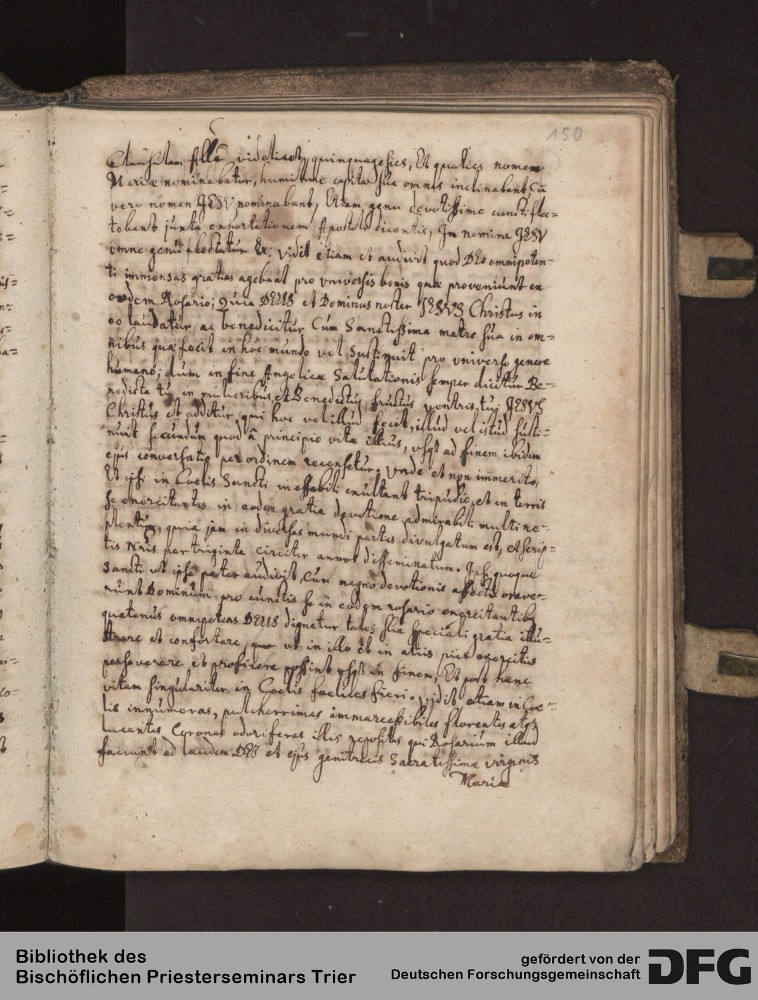 150
Clausulam Alla videlicet, quinquagesies, Et quoties nomen
Mariæ nominabatur, humi tme capita sua omnes inclinabant, Cu
vero nomen JESV nominabant, Etiam genu devotissime cuncti flec=
tebant juxta exhortationem Apostoli dicentis, In nomine JESV
omne genu flectatur &c: vidit etiam et audivit quod DEo omnipoten=
ti immensas gratias agebant pro universis bonis quæ proveniunt ex
eodem Rosario; Quia DEUS et Dominus noster JESVS Christus in
eo laudatur ac benedicitur Cum Sanctissima matre sua in om=
nibus quæ fecit in hoc mundo vel sustinuit pro universo genere
humano; dum in fine Angelicæ Salutationis semper dicitur Be=
nedicta tu in mulieribus, et Benedictus fructus ventris tui JESVS
Christus et additur, qui hoc vel illud fecit, illud vel istud susti=
nuit secundum quod à principio vitæ illius, usq ad finem ibidem
ejus conversatio per ordinem recensetur. Unde et non immerito,
Et ipsi in Coelis Sancti ineffabili exultant tripudio, et in terris
se exercitantes in eodem gratia devotione admirabili multi re=
plentur, quia jam in diversas mundi partes divulgatum est, et scrip=
tis nris per triginta circiter annos disseminatum. Ipsi quoque
Sancti ut ipse pater audivit, Cum magno devotionis affectu orave=
runt Dominum, pro cunctis se in eodem rosario exercitantib
quatenus omnipotens DEUS dignetur tales sua speciali gratia illu=
strare et confortare, quo ut in illo et in aliis piis exercitiis
perseverare et proficere possint usq in finem, Et post hanc
vitam singulariter in Coelis foelices fieri. vidit etiam in Coe=
lis innumeras, pulcherrimas immarcessibiles florentes atq
lucentes Coronas odoriferas illis repositas qui Rosarium illud
faciunt ad laudem DEI et ejus genitricis Sacratissimæ virginis
Mariæ
Bibliothek des
Bischöflichen Priesterseminars Trier
gefördert von der
Deutschen Forschungsgemeinschaft
DFG